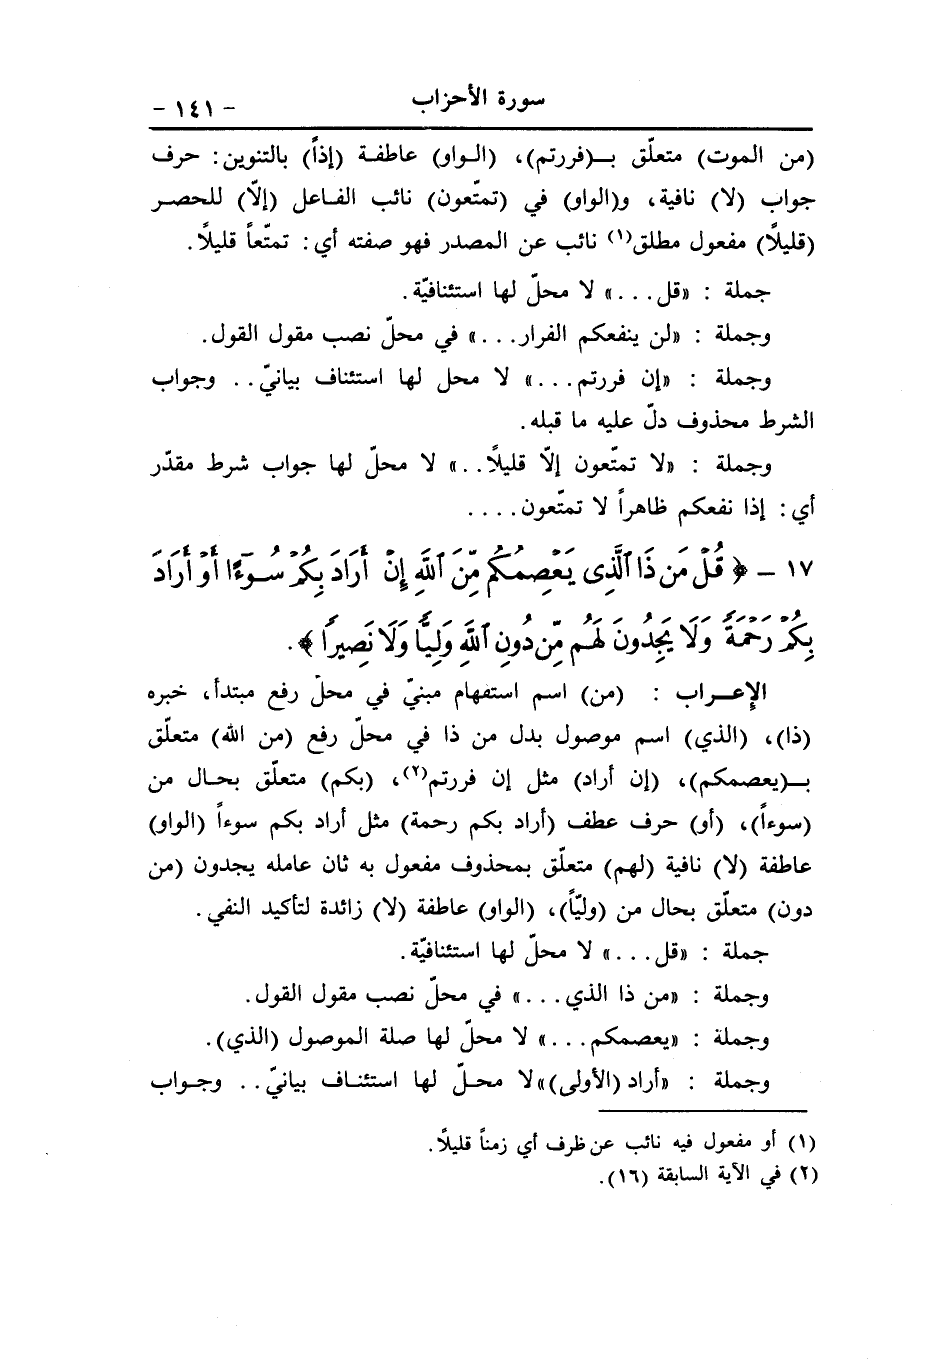 سورة الأحزاب
- ١٤١ -
(من الموت) متعلّق بـ(فررتم)، (الواو) عاطفة (إذاً) بالتنوين: حرف
جواب (لا) نافية، و(الواو) في (تمتّعون) نائب الفاعل (إلّا) للحصر
(قليلًا) مفعول مطلق(١) نائب عن المصدر فهو صفته أي: تمتّعاً قليلًا.
جملة : «قل...» لا محلّ لها استئنافيّة.
وجملة : «لن ينفعكم الفرار...» في محلّ نصب مقول القول.
وجملة : «إن فررتم...» لا محل لها استئناف بيانيّ.. وجواب
الشرط محذوف دلّ عليه ما قبله.
وجملة : «لا تمتّعون إلّا قليلًا..» لا محلّ لها جواب شرط مقدّر
أي: إذا نفعكم ظاهراً لا تمتّعون....
١٧ - ﴿ قُلْ مَن ذَا ٱلَّذِى يَعْصِمُكُم مِّنَ ٱللَّهِ إِنْ أَرَادَ بِكُمْ سُوٓءًا أَوْ أَرَادَ
بِكُمْ رَحْمَةً وَلَا يَجِدُونَ لَهُم مِّن دُونِ ٱللَّهِ وَلِيًّا وَلَا نَصِيرًا ﴾.
الإعـراب : (من) اسم استفهام مبنيّ في محلّ رفع مبتدأ، خبره
(ذا)، (الذي) اسم موصول بدل من ذا في محلّ رفع (من الله) متعلّق
بـ(يعصمكم)، (إن أراد) مثل إن فررتم(٢)، (بكم) متعلّق بحال من
(سوءاً)، (أو) حرف عطف (أراد بكم رحمة) مثل أراد بكم سوءاً (الواو)
عاطفة (لا) نافية (لهم) متعلّق بمحذوف مفعول به ثان عامله يجدون (من
دون) متعلّق بحال من (وليّاً)، (الواو) عاطفة (لا) زائدة لتأكيد النفي.
جملة : «قل...» لا محلّ لها استئنافيّة.
وجملة : «من ذا الذي...» في محلّ نصب مقول القول.
وجملة : «يعصمكم...» لا محلّ لها صلة الموصول (الذي).
وجملة : «أراد (الأولى)» لا محلّ لها استئناف بيانيّ.. وجواب
(١) أو مفعول فيه نائب عن ظرف أي زمناً قليلًا.
(٢) في الآية السابقة (١٦).